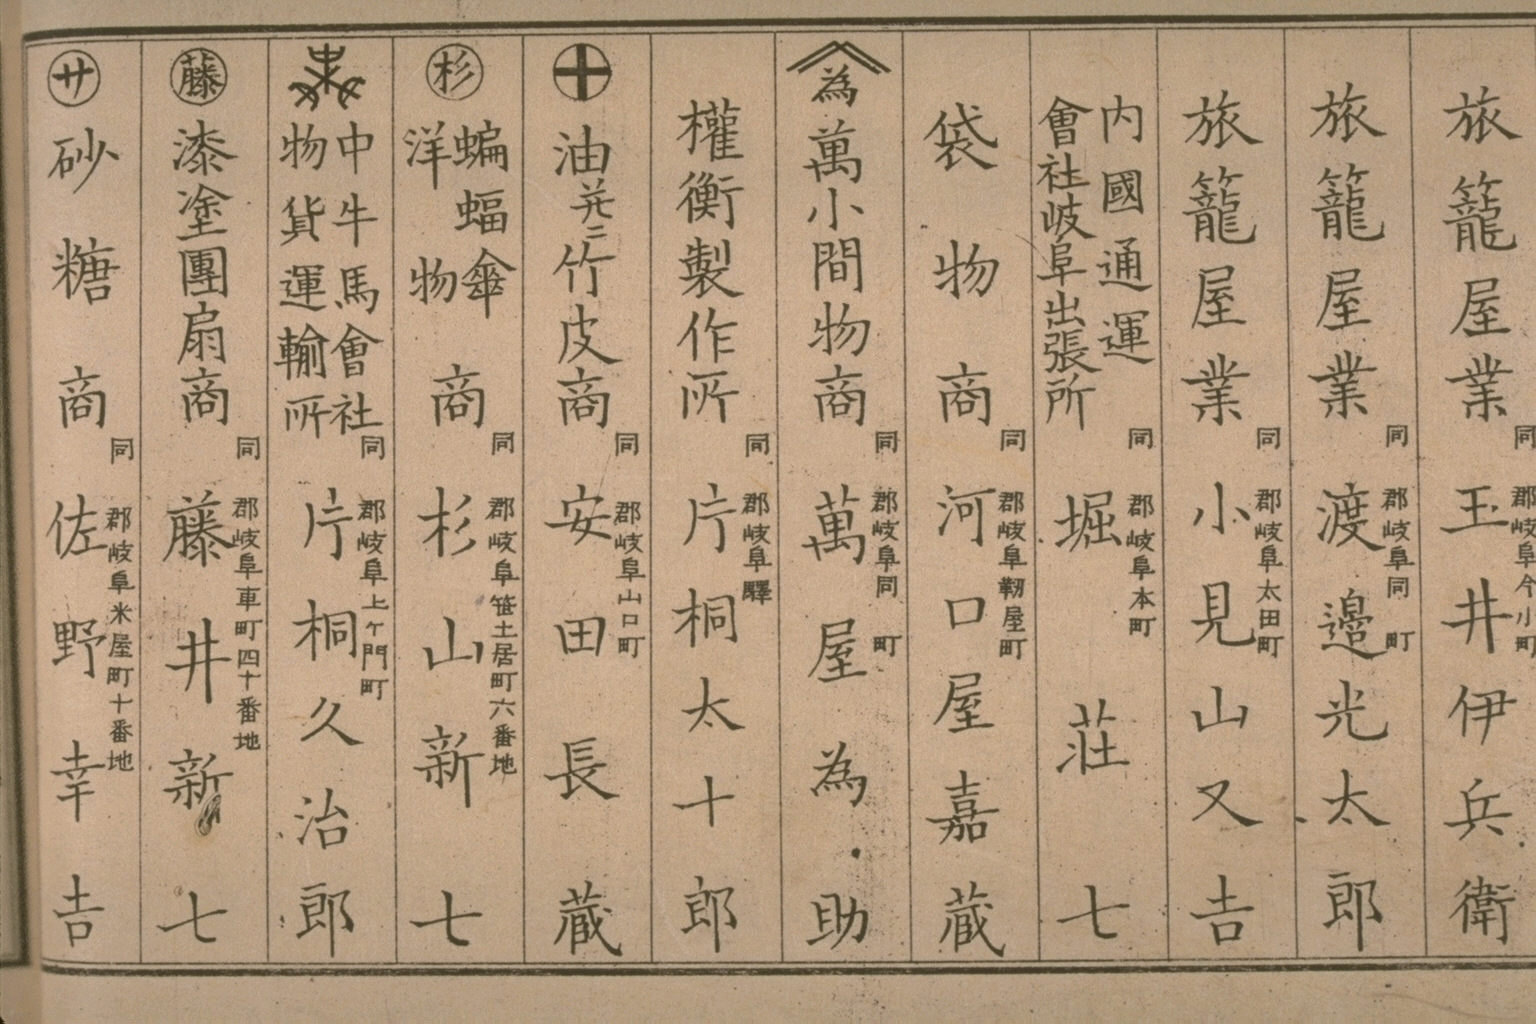 旅籠屋業 同郡岐阜今小町 玉井伊兵衛
旅籠屋業 同郡岐阜同町 渡邉光太郎
旅籠屋業 同郡岐阜太田町 小見山又吉
内國通運會社岐阜出張所 同郡岐阜本町 堀荘七
袋物商 同郡岐阜靭屋町 河口屋嘉蔵
為 萬小間物商 同郡岐阜同町 萬屋為助
權衡製作所 同郡岐阜驛 片桐太十郎
油並ニ竹皮商 同郡岐阜山口町 安田長蔵
杉 蝙蝠傘洋物商 同郡岐阜笹土居町六番地 杉山新七
中牛馬會社物貨運輸所 同郡岐阜上ケ門町 片桐久治郎
藤 漆塗團扇商 同郡岐阜車町四十番地 藤井新七
サ 砂糖商 同郡岐阜米屋町十番地 佐野幸吉